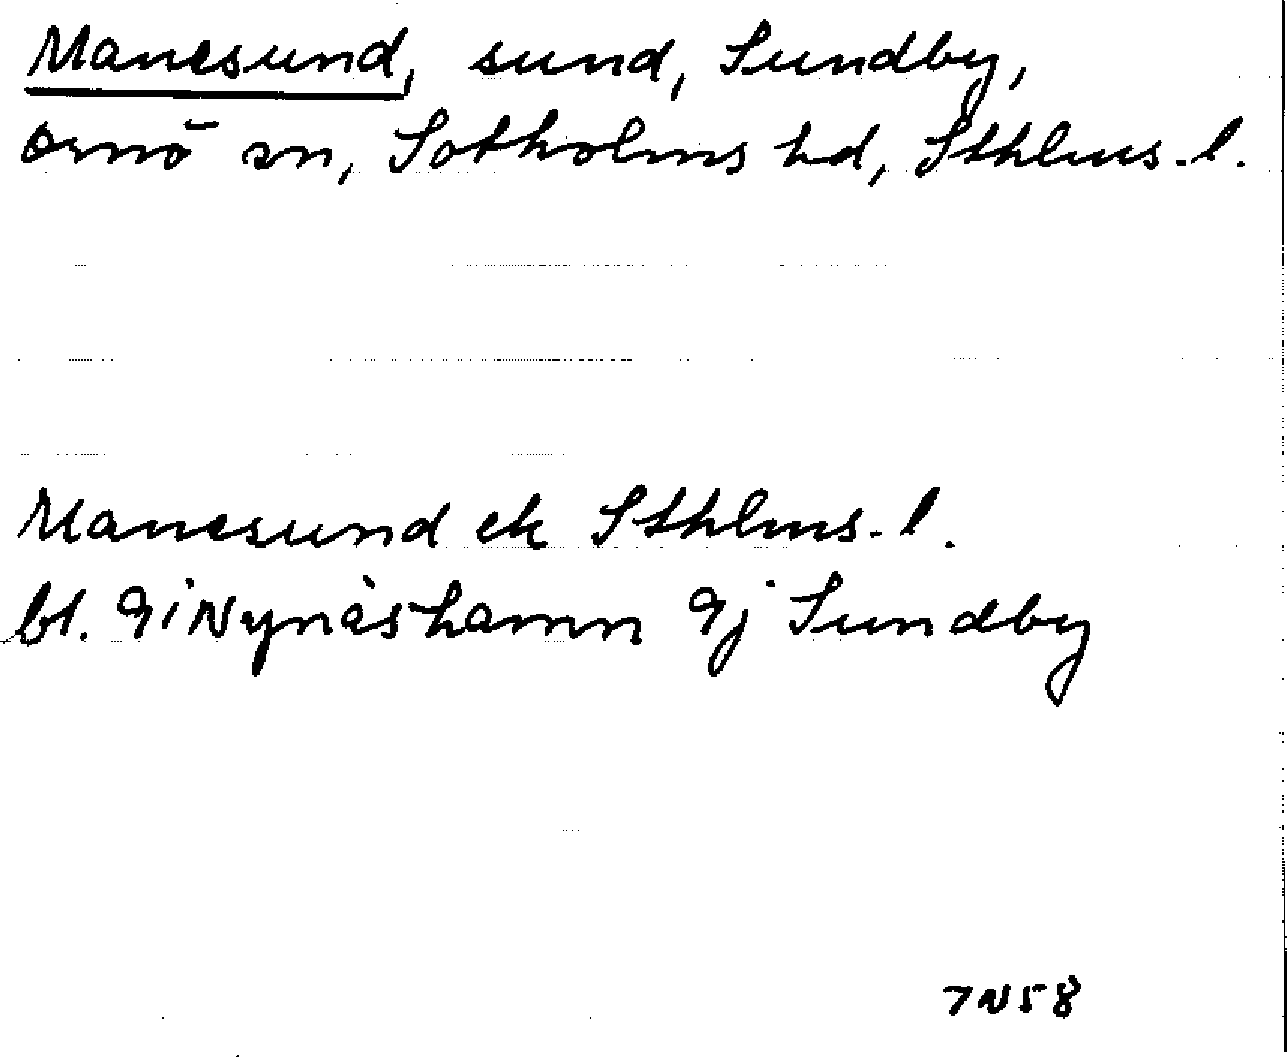 Manesund, sund, Sundby,
Ornö sn, Sotholms hd, Sthlms. l.
Manesund ek Sthlms. l.
bl. 9i Nynäshamn 9j Sundby
7N58